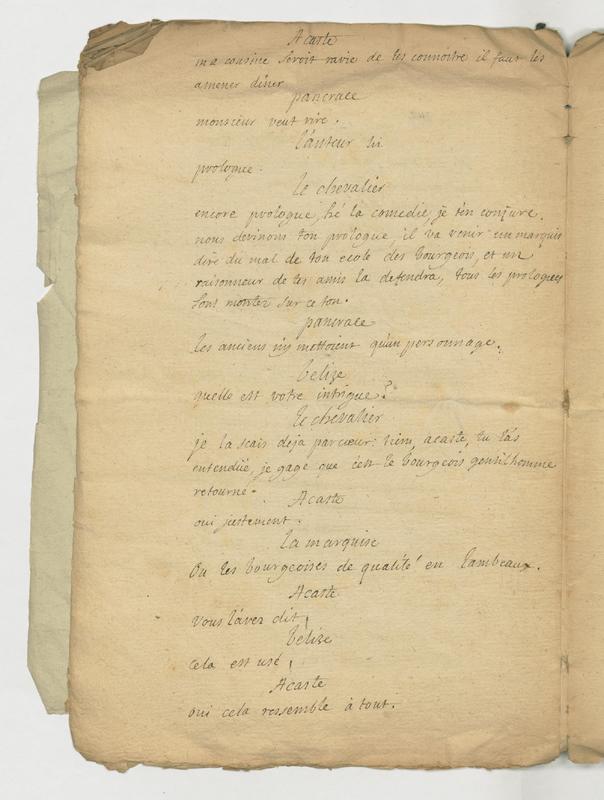 Acaste
ma cousine seroit ravie de les connoitre il faut les
amener diner
pancrace
monsieur veut rire.
l'auteur lit
prologue.
le chevalier
encore prologue, hé la comedie, je t'en conjure.
nous devinons ton prologue, il va venir un marquis
dire du mal de ton ecole des bourgeois, et un
raisonneur de tes amis la defendra, tous les prologues
sont montez sur ce ton.
pancrace
les anciens n'y mettoient qu'un personnage.
belize
quelle est votre intrigue?
le chevalier
je la scais deja par cœur: tiens, acaste, tu l'as
entendüe, je gage que c'est le bourgeois gentilhomme
retourné.
Acaste
oui justement.
la marquise
Ou les bourgeoises de qualité en lambeaux.
Acaste
vous l'avez dit,
belize
cela est usé,
Acaste
oui cela ressemble à tout.